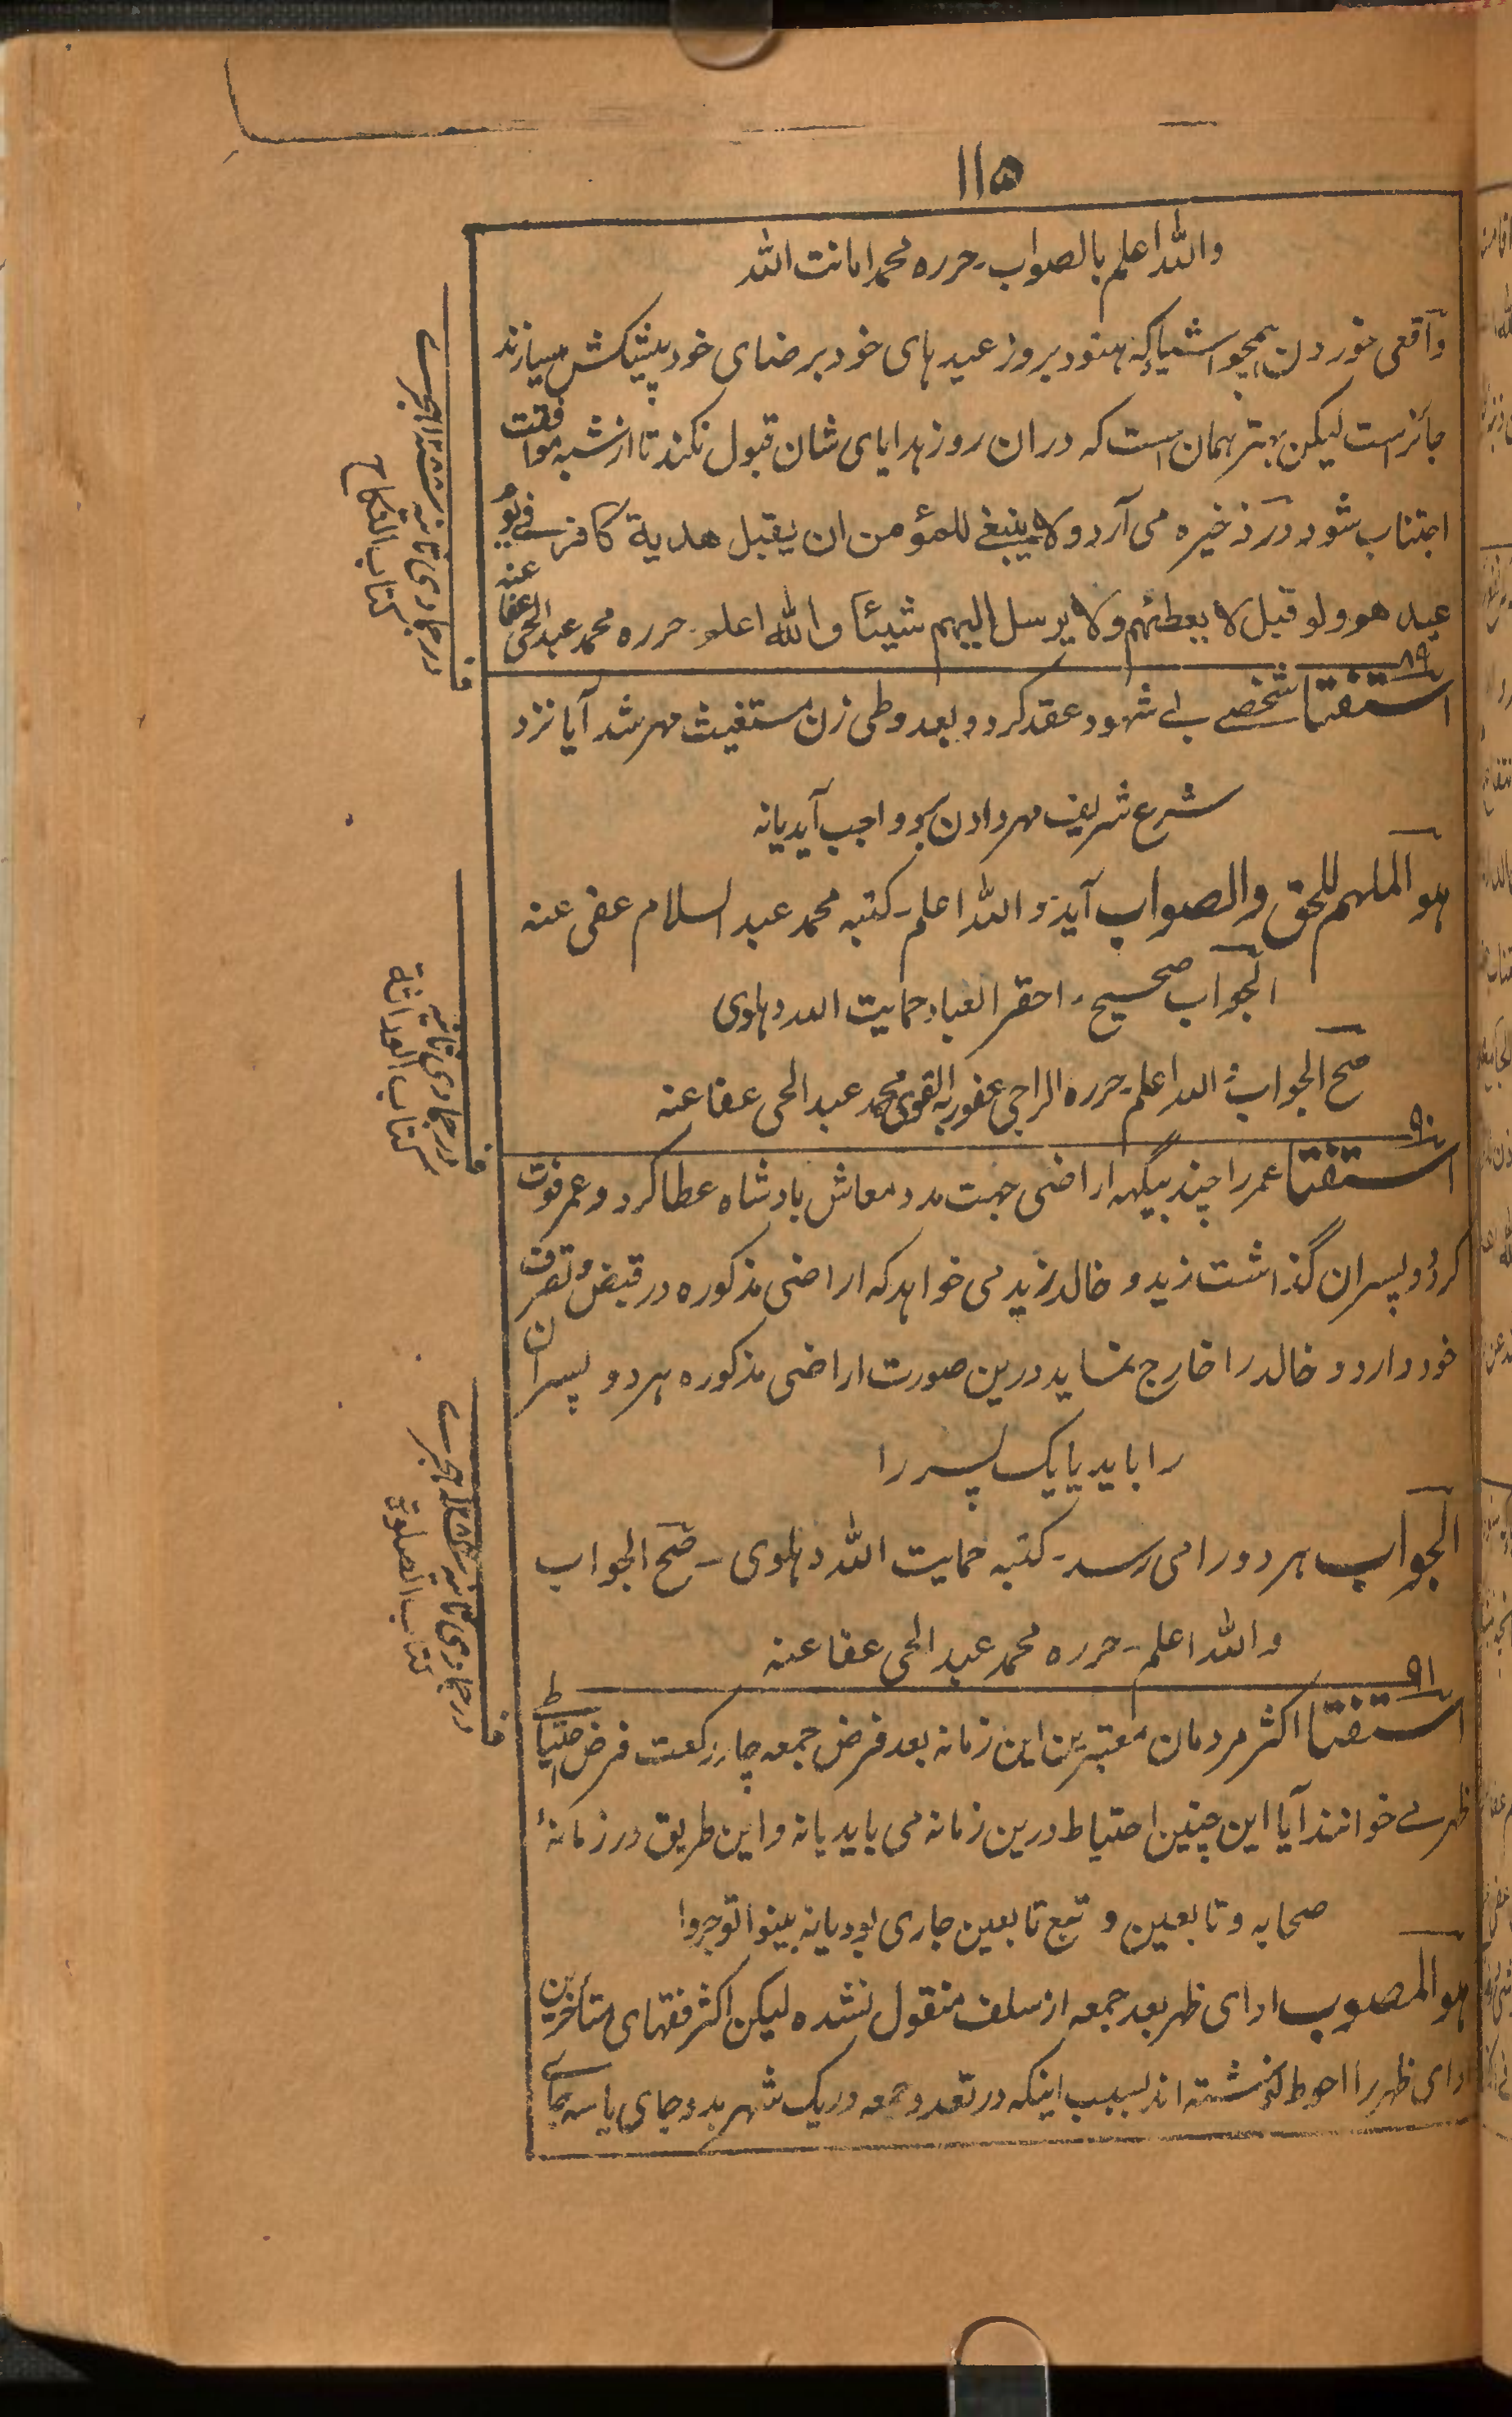 ۱۱۵
واللّٰه اعلم بالصواب۔ حرره محمد امانت اللّٰه
واقعی خوردن ہمچو اشیا کہ ہنود بروز عید ہای خود برضای خود پیشکش میسازند
جائز است لیکن بہتر ہمان است کہ دران روز ہدایای شان قبول نکند تا از شبہ موافقت
اجتناب شود در ذخیرہ می آرد ولا ینبغی للمؤمن ان یقبل ھدیة کافر فے یوم
عید ھو ولو قبل لا یعطیہم ولا یرسل الیہم شیئا واللّٰه اعلم۔ حررہ محمد عبد الحی عفا عنہ
۸۹
استفتا شخصے بے شہود عقد کرد و بعد وطی زن مستغیث مہر شد آیا نزد
شرع شریف مہر دادن برو واجب آید یا نہ
ہو الملہم للحق والصواب آید واللّٰه اعلم۔ کتبہ محمد عبد السلام عفی عنہ
الجواب صحیح۔ احقر العباد حمایت اللہ دہلوی
صح الجواب واللہ اعلم۔ حررہ الراجی عفو ربہ القوی محمد عبد الحی عفا عنہ
۹۰
استفتا عمر را چند بیگہہ اراضی جہت مدد معاش بادشاہ عطا کرد و عمر فوت
کرد و پسران گذاشت زید و خالد زید می خواہد کہ اراضی مذکورہ در قبض و تصرف
خود دارد و خالد را خارج نماید درین صورت اراضی مذکورہ ہر دو پسران
را باید یا یک پسر را
الجواب ہر دو را می رسد۔ کتبہ حمایت اللّٰه دہلوی۔ صح الجواب
واللّٰه اعلم۔ حررہ محمد عبد الحی عفا عنہ
۹۱
استفتا اکثر مردمان معتبرین این زمانہ بعد فرض جمعہ چار رکعت فرض احتیاط
ظہر مے خوانند آیا این چنین احتیاط درین زمانہ می باید یا نہ و این طریق در زمانۂ
صحابہ و تابعین و تبع تابعین جاری بود یا نہ بینوا توجروا
ہو المصوب ادای ظہر بعد جمعہ از سلف منقول نشدہ لیکن اکثر فقہای متأخرین
ادای ظہر را احوط نوشتہ اند بسبب اینکہ در تعدد جمعہ در یک شہر بدو جای یا سہ جا
کتاب النکاح
کتاب الصلوة